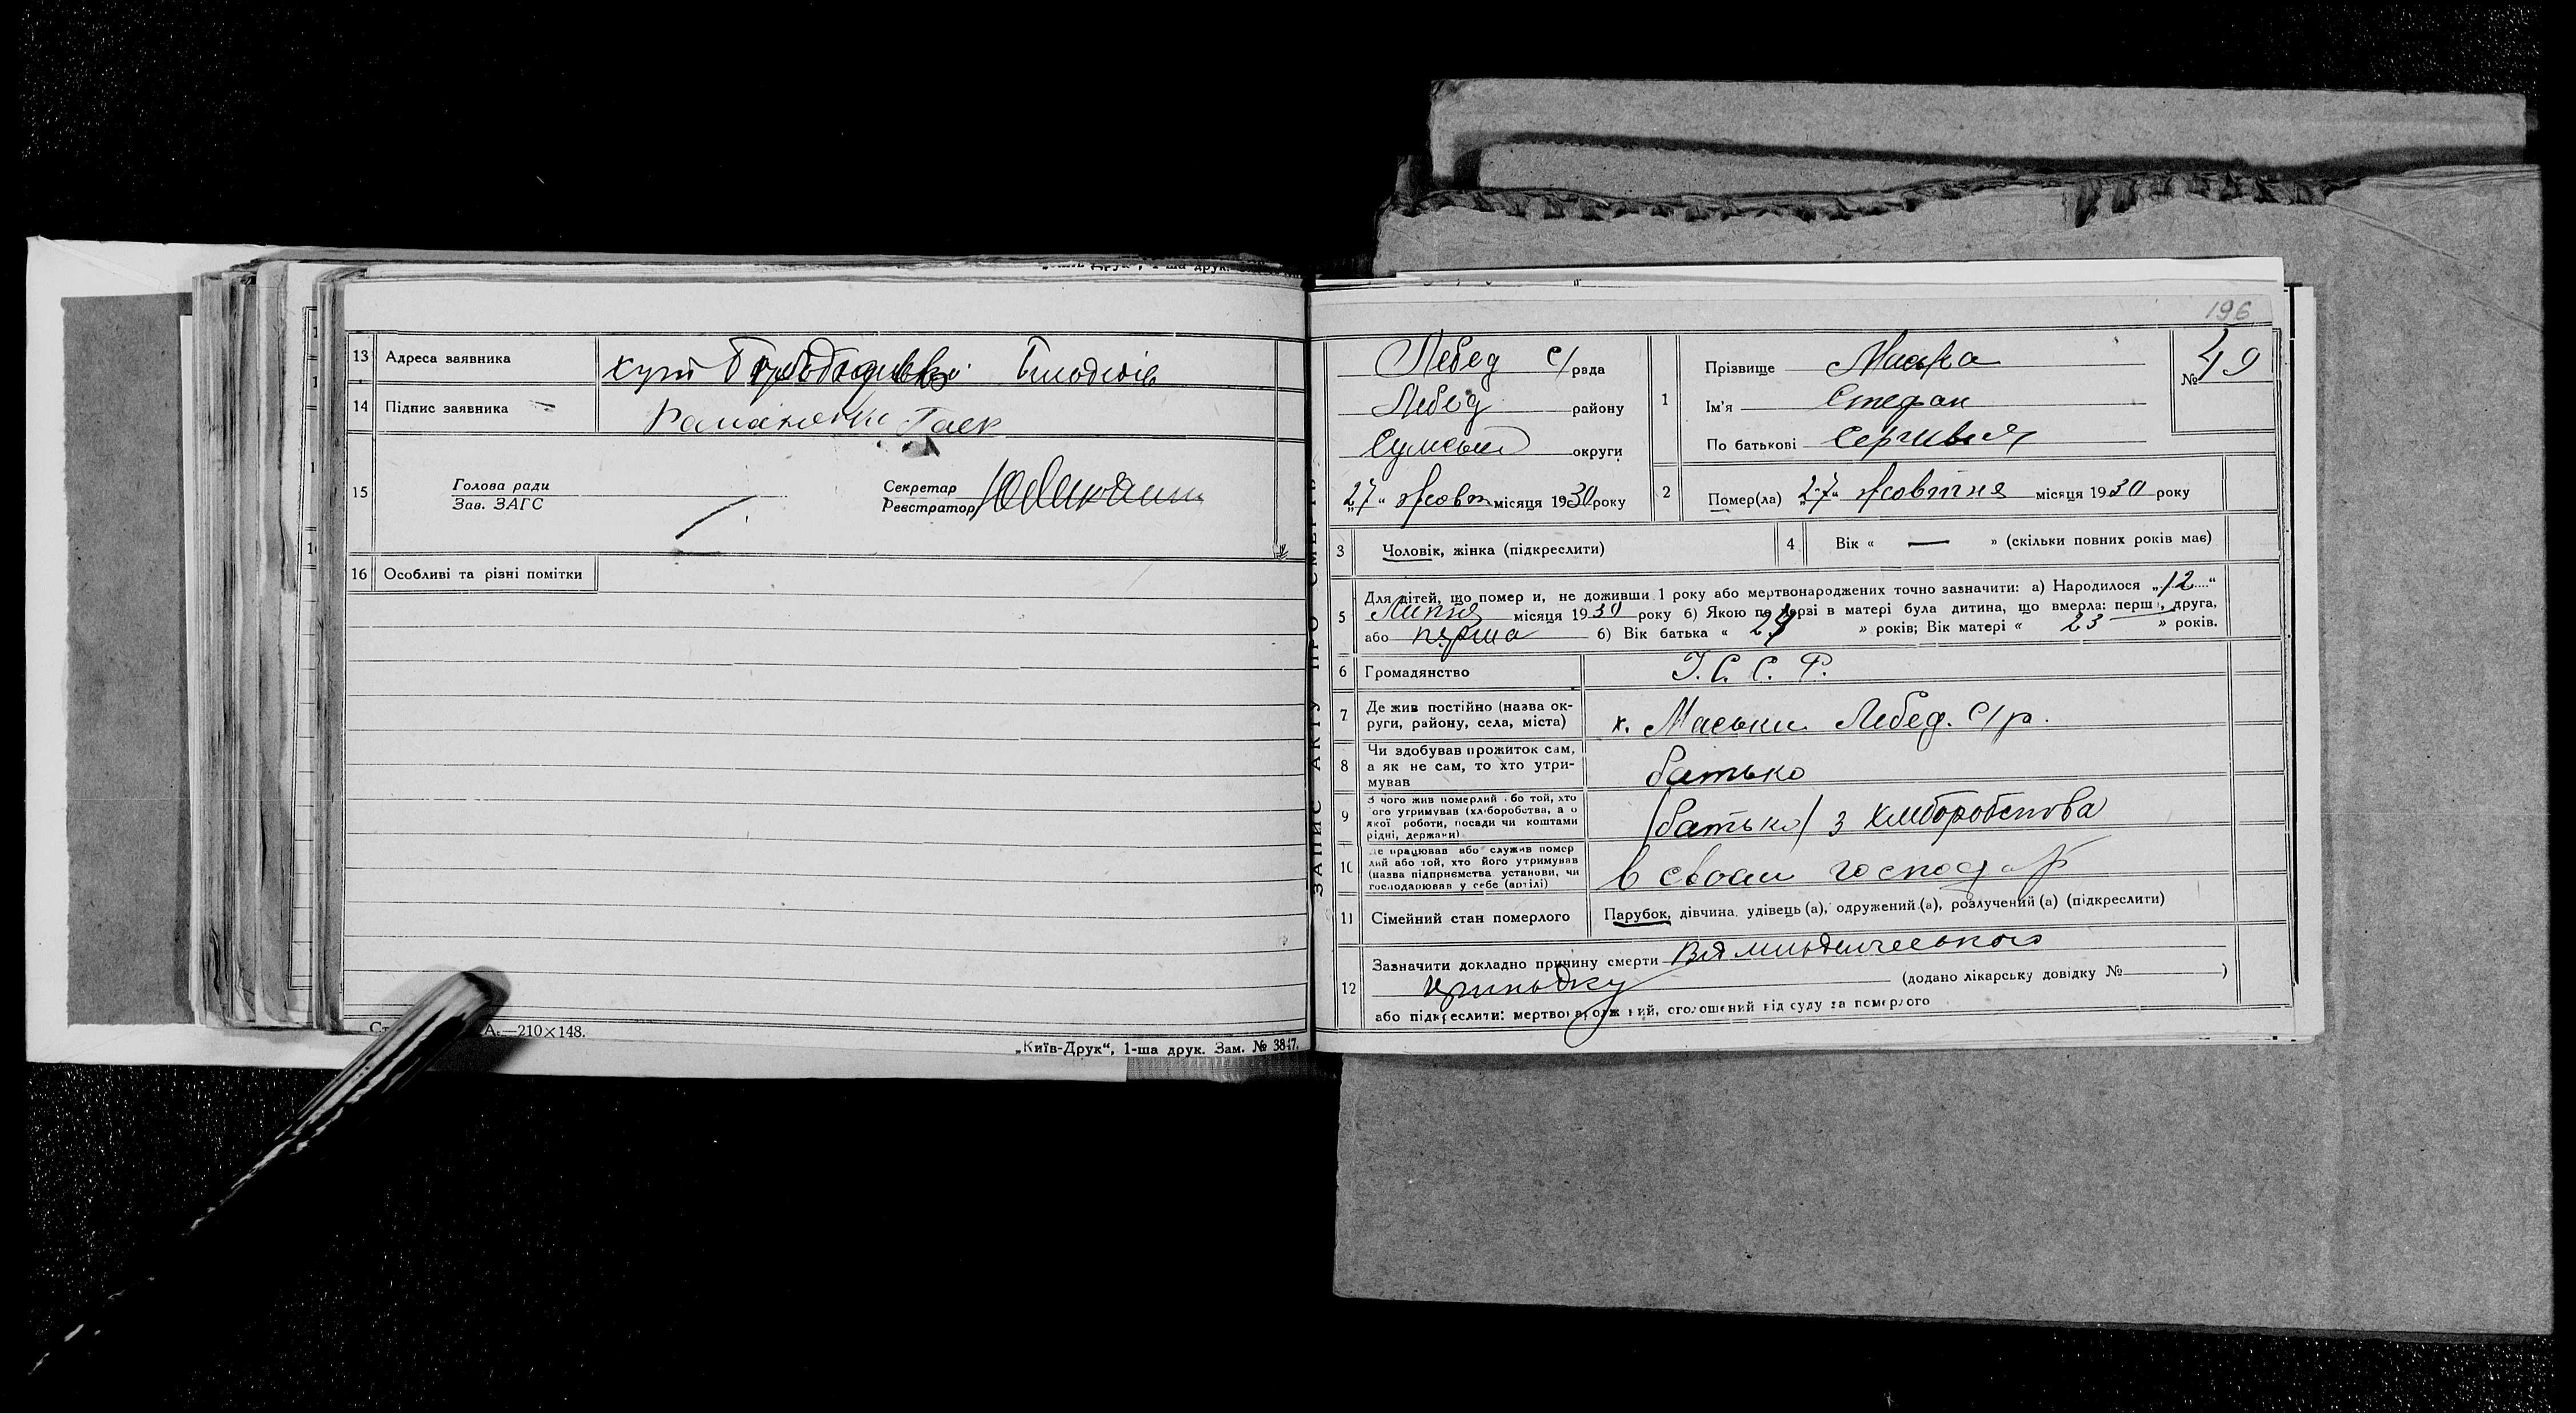 13 Адреса заявника хут
14 Підпис заявника
15 Голова ради
Зав. ЗАГС
Секретар
Реєстратор
16 Особливі та різні помітки
А₅—210×148.
„Київ-Друк“, 1-ша друк. Зам. № 3847.
196
ЗАПИС АКТУ ПРО СМЕРТЬ
Лебед с/рада
Лебед району
Сумської округи
„27“ Жовт місяця 1930 року
№ 49
1 Прізвище Масько
Ім'я Степан
По батькові Сергиевич
2 Помер(ла) „27“ Жовтня місяця 1930 року
3 Чоловік, жінка (підкреслити)
4 Вік « — » (скільки повних років має)
5 Для дітей, що померли, не доживши 1 року або мертвонароджених точно зазначити: а) Народилося „12“
Липня місяця 1930 року б) Якою по черзі в матері була дитина, що вмерла: перша, друга,
або перша б) Вік батька « 24 » років; Вік матері « 23 » років.
6 Громадянство У.С.С.Р.
7 Де жив постійно (назва ок-
руги, району, села, міста) х. Маськи Лебед. с/р.
8 Чи здобував прожиток сам,
а як не сам, то хто утри-
мував батько
9 З чого жив померлий або той, хто
його утримував (хліборобства, а о
якої роботи, посади чи коштами
рідні, держави) /батько/ з хліборобства
10 Де працював або служив помер
лий або той, хто його утримував
(назва підприємства установи, чи
господарював у себе (артілі) в своєм господар
11 Сімейний стан померлого Парубок, дівчина, удівець (а), одружений (а), розлучений (а) (підкреслити)
12 Зазначити докладно причину смерти Від младенческого
припадку (додано лікарську довідку № )
або підкреслити: мертвонароджений, оголошений від суду за померлого